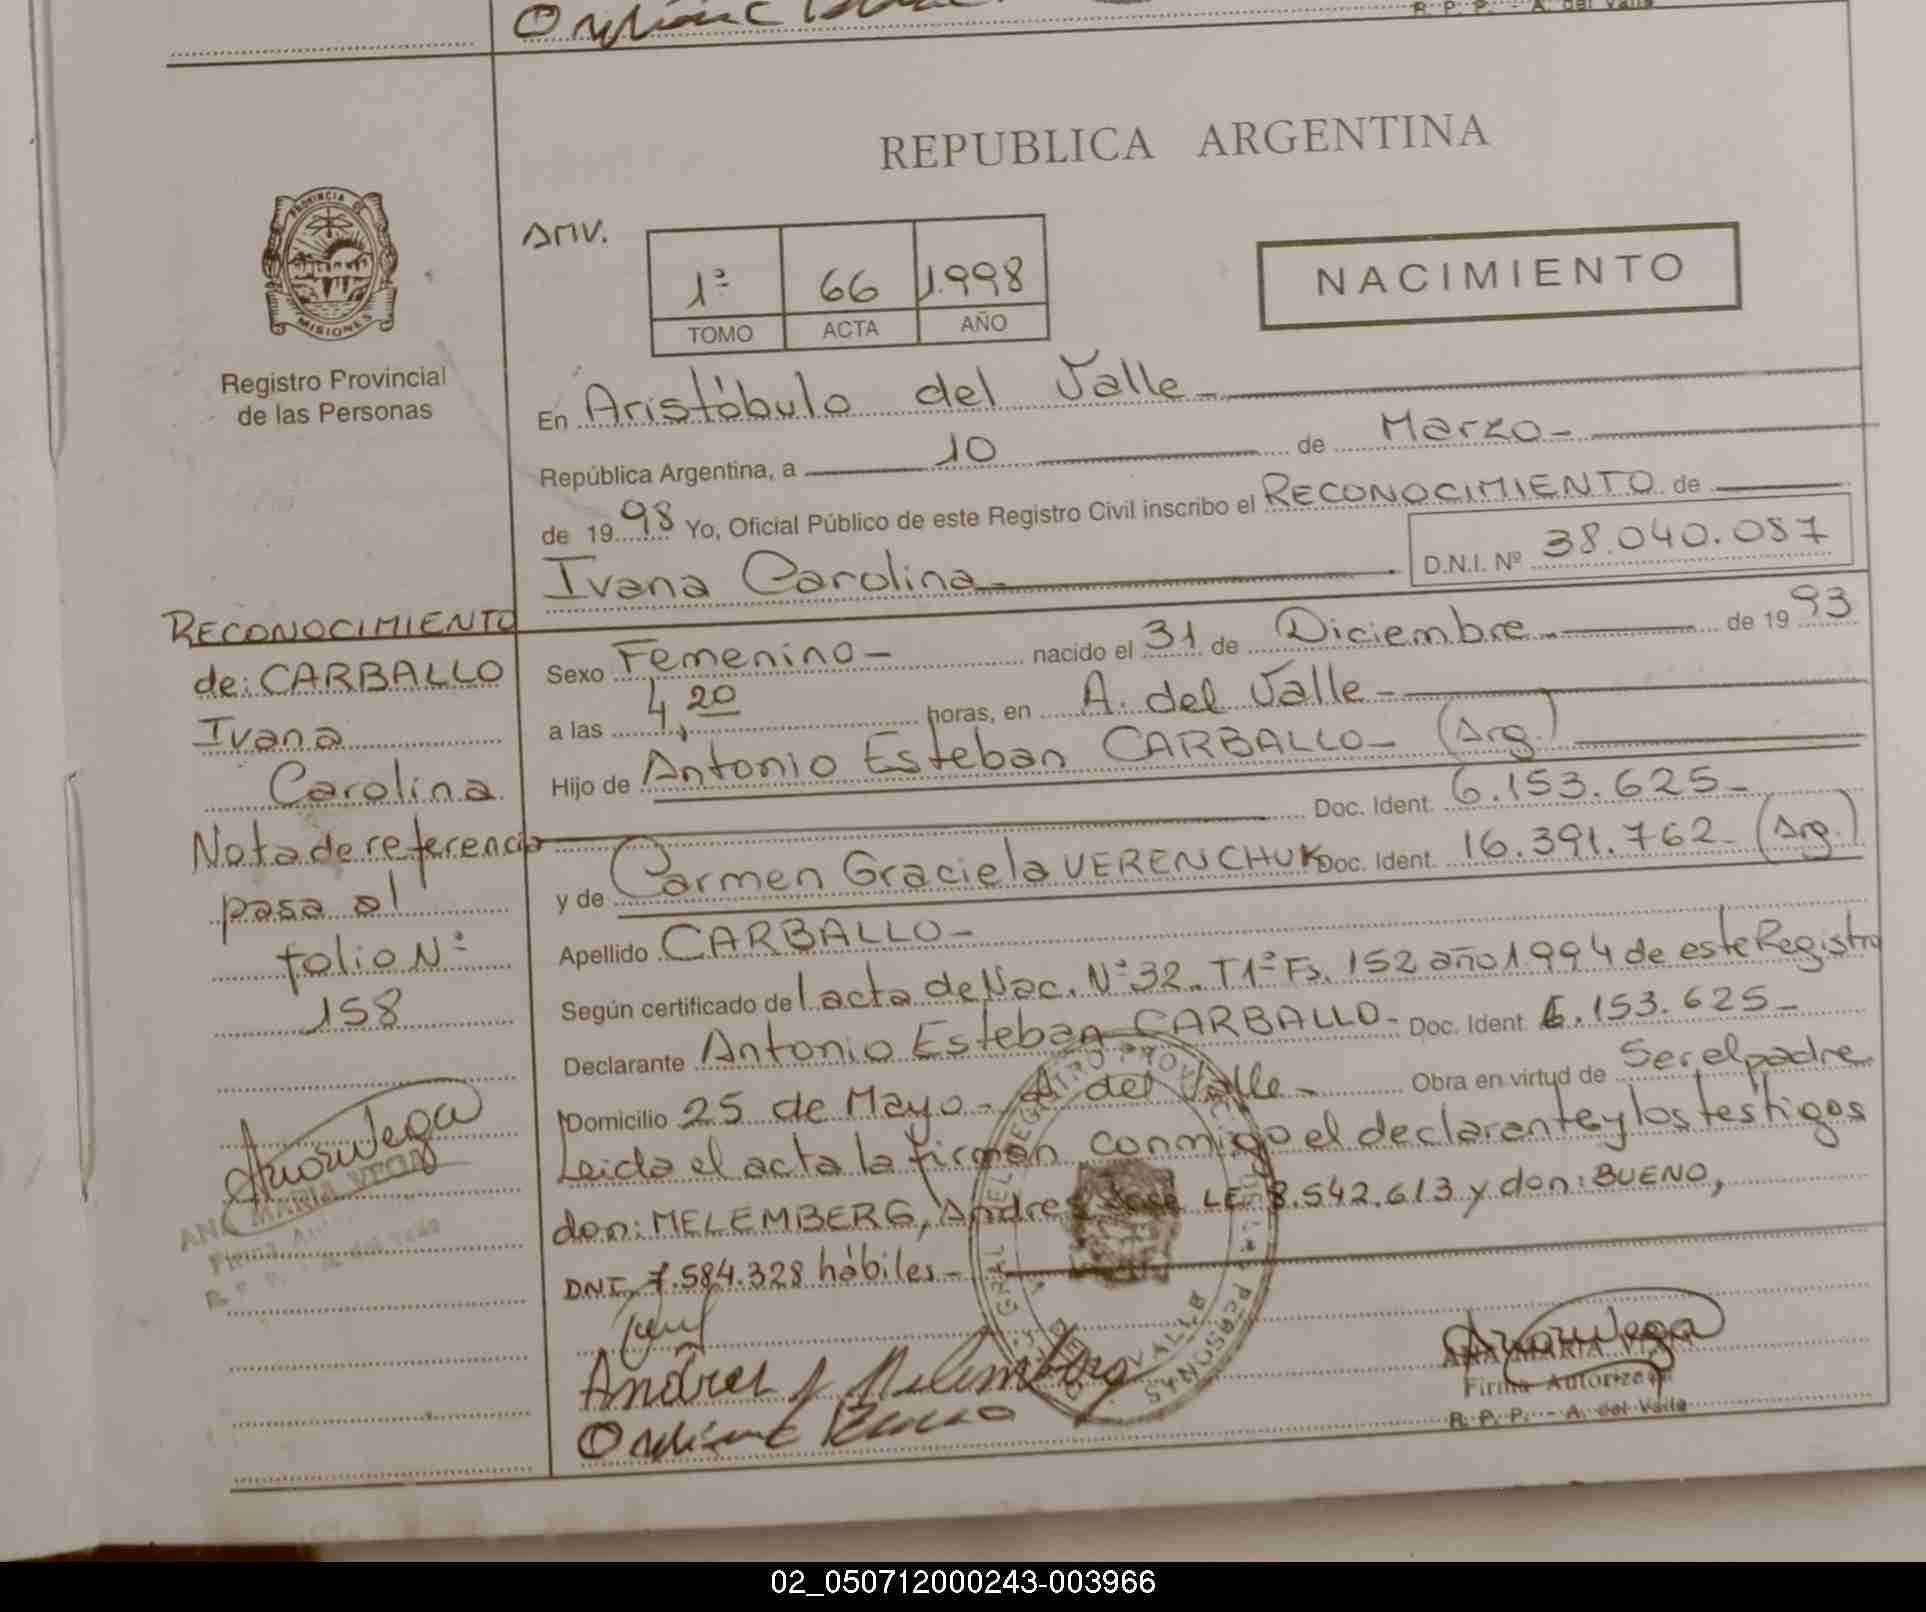 R. P. P. - A. del Valle
REPUBLICA ARGENTINA
PROVINCIA DE
MISIONES
Registro Provincial
de las Personas
AMV.
1º 66 1.998
TOMO ACTA AÑO
NACIMIENTO
En Aristóbulo del Valle-
República Argentina, a 10 de Marzo-
de 19 98 Yo, Oficial Público de este Registro Civil inscribo el RECONOCIMIENTO de
Ivana Carolina- D.N.I. Nº 38.040.087
Sexo Femenino- nacido el 31 de Diciembre- de 19 93
a las 4,20 horas, en A. del Valle-
Hijo de Antonio Esteban CARBALLO- (Arg.)
Doc. Ident. 6.153.625-
y de Carmen Graciela VERENCHUK Doc. Ident. 16.391.762- (Arg.)
Apellido CARBALLO-
Según certificado del acta de Nac. Nº 32. T1º Fs. 152 año 1994 de este Registro
Declarante Antonio Esteban CARBALLO- Doc. Ident. 6.153.625-
Domicilio 25 de Mayo- A. del Valle- Obra en virtud de Ser el padre
Leida el acta la firman conmigo el declarante y los testigos
don: MELEMBERG, Andres José LE 8.542.613 y don: BUENO,
DNI 7.584.328 hábiles-
Andres J Melemberg
ANA MARIA VEGA
Firma Autorizada
R. P. P. - A. del Valle
RECONOCIMIENTO
de: CARBALLO
Ivana
Carolina
Nota de referencia
pasa al
folio Nº
158
ANA MARIA VEGA
Firma Au
R. P. P. - A. del Valle
02_050712000243-003966